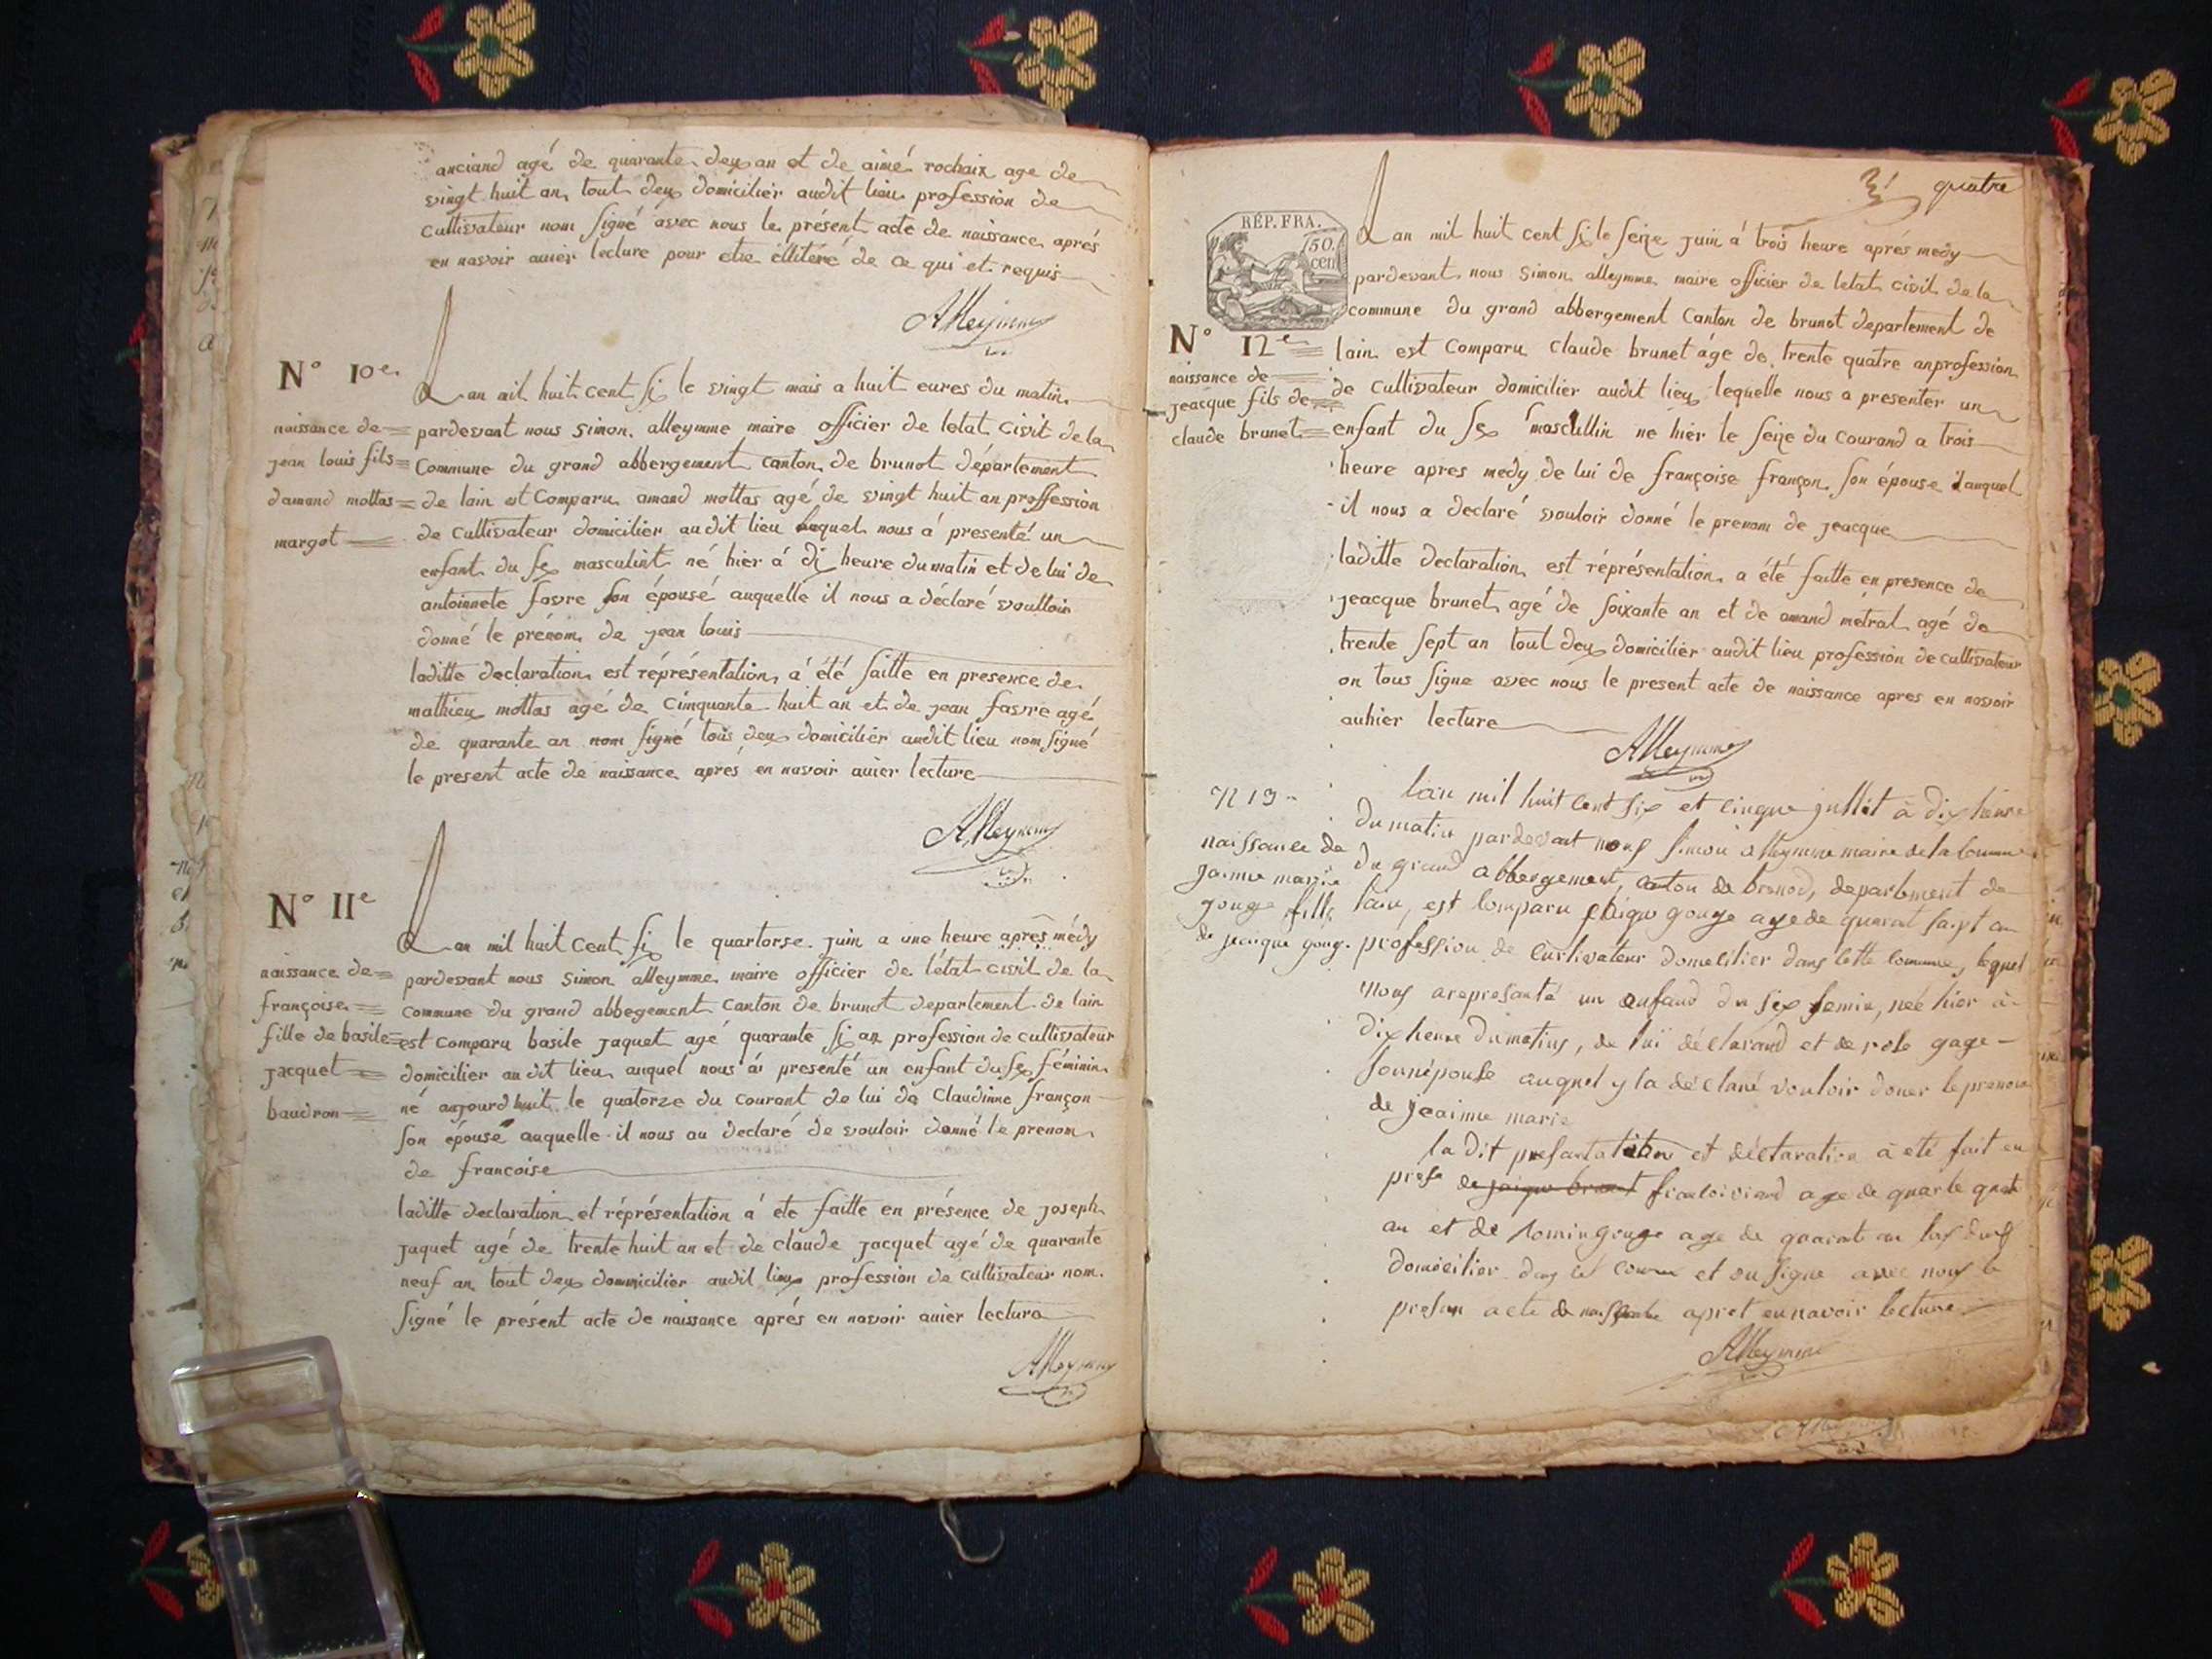 anciand agé de quarante deux an et de aimé rochaix age de
vingt huit an, tout deux domicilier audit lieu profession de
cultivateur nom signé avec nous le présent acte de naissance aprés
en navoir auier lecture pour etre éllitéré de ce qui et requis
Alleymme
N° 10e
Lan mil huit cent si le vingt mais a huit eures du matin
naissance de
jean louis fils
damand mottas
margot
pardevant nous simon alleymme maire officier de letat civit de la
Commune du grand abbergement canton de brunot département
de lain est Comparu amand mottas agé de vingt huit an proffession
de cultivateur domicilier audit lieu lequel nous á presenté un
enfant du sex masculint né hier á dix heure du matin et de lui de
antoinnete favre son épousé auquelle il nous a déclaré voulloir
donné le prénom de jean louis
laditte declaration est réprésentation á été faitte en presence de
mathieu mottas agé de Cinquante huit an et de jean favre agé
de quarante an nom signé tous deux domicilier audit lieu nom signé
le present acte de naissance aprés en navoir auier lecture
Alleymme
N° IIe
Lan mil huit cent si le quartorse juin a une heure aprés médy
naissance de
françoise
fille de basile
jacquet
baudron
pardevant nous simon alleymme maire officier de létat civil de la
Commune du grand abbegement Canton de brunot departement de lain
est Comparu basile jaquet agé quarante si an profession de cultivateur
domicilier audit lieu auquel nous á presenté un enfant du sex féminin
né aujourdhuit le quatorze du courant de lui de Claudinne françon
son épousé auquelle il nous au declaré de vouloir donné le prenom
de francoise
laditte declaration et réprésentation á ete faitte en présence de joseph
jaquet agé de trente huit an et de claude jacquet agé de quarante
neuf an tout deux dommicilier audit lieux profession de cultivateur nom
signé le présent acte de naissance aprés en navoir auier lectura
Alleymme
quatre
RÉP. FRA.
50.
cen
Lan mil huit cent six le seize juin á trois heure aprés medy
pardevant nous simon alleymme maire officier de letat civil de la
commune du grand abbergement Canton de brunot departement de
N° 12e
naissance de
jeacque fils de
claude brunet
lain est Comparu Claude brunet áge de trente quatre an profession
de cultivateur domicilier audit lieu lequelle nous a presenter un
enfant du sex mascullin né hier le seize du courand a trois
heure apres medy de lui de françoise françon son épouse auquel
il nous a declaré vouloir donné le prénom de jeacque
laditte declaration est réprésentation a été faitte en presence de
jeacque brunet agé de soixante an et de amand métral agé de
trente sept an tout deux domicilier audit lieu profession de cultivateur
on tous signe avec nous le present acte de naissance apres en navoir
auhier lecture
Alleymme
N 13
naissance de
jainne marie
gouge fille
de jeacque gouge
lan mil huit cent six et cinque jullit à dix heure
du matin pardevant nous simon alleymme maire de la commune
du grand abbergement, canton de brenod, departement de
lain, est comparu gouge age de quarat sept an
profession de curtivateur domecilier dans cette commune, lequel
nous a represanté un enfand du six femin, née hier à
dix heure du matins, de lui déclarand et de rose gage
son népouse auquel y la déclaré vouloir doner le prenom
de jeainne marie
la dit presantatition et déclaration à eté fait en
prese de jaique brunet age de quarte quat
an et de gouge age de quarante an
domicilier et on signe avec nous le
presen acte de apret en navoir lecture
Alleymme